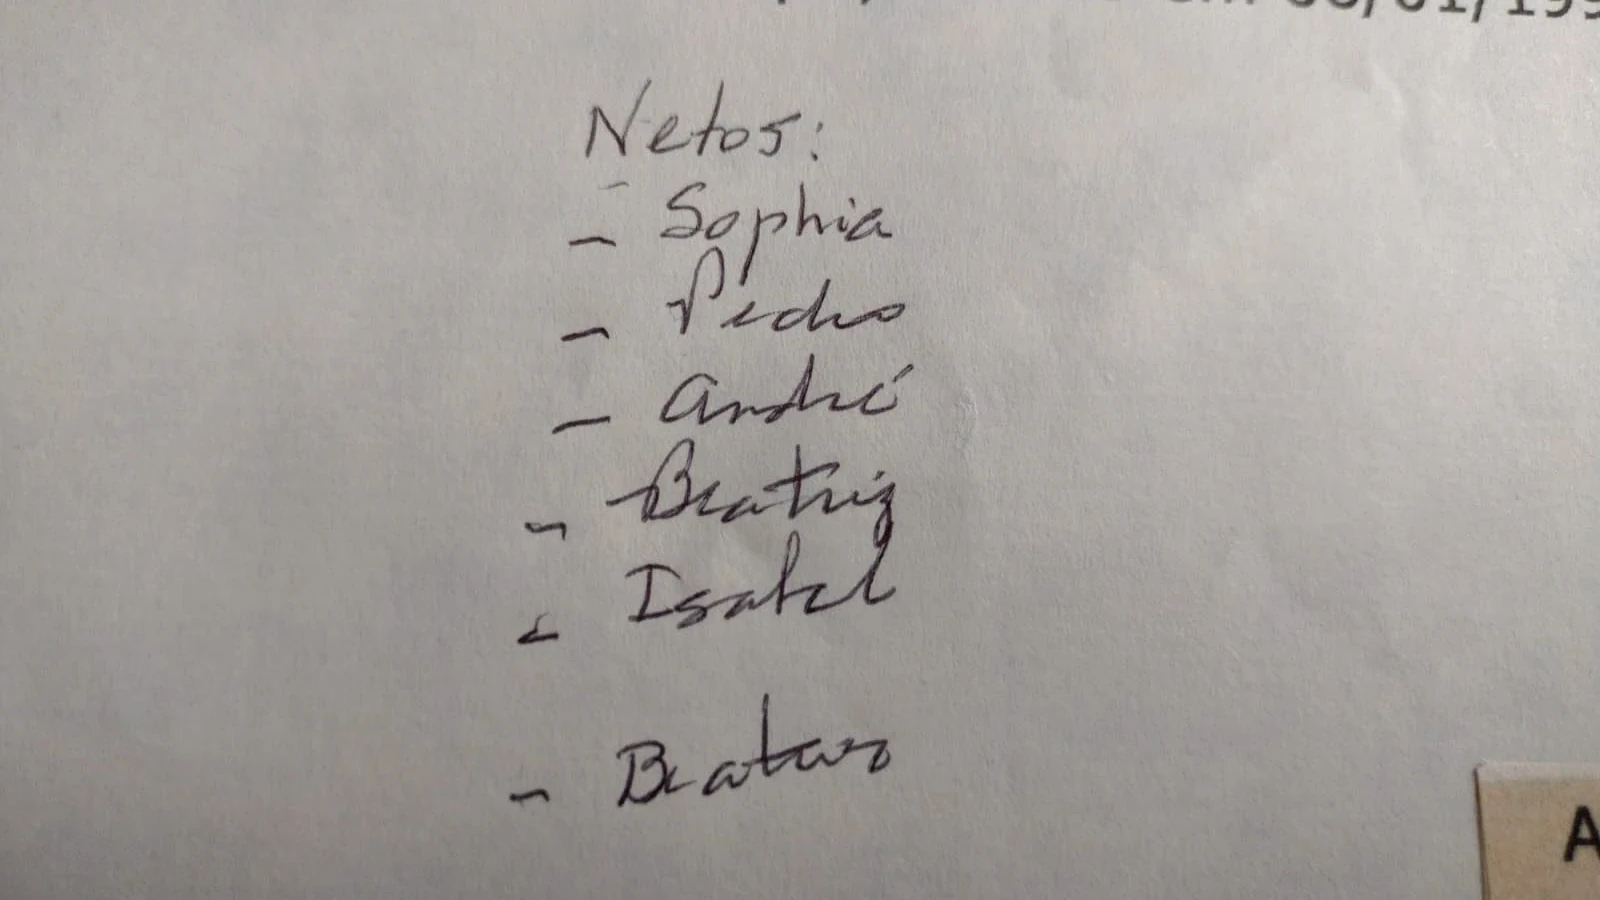 /01/199
Netos:
- Sophia
- Pedro
- André
- Beatriz
- Isabel
- Beatriz
A